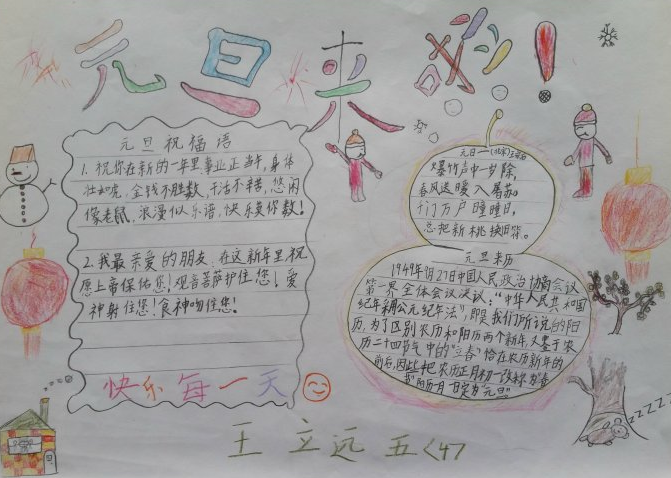 元旦来
!
元旦祝福语
1.祝你在新的一年里事业正当午,身体
壮如虎,金钱不胜数,干活不辛苦,悠闲
像老鼠,浪漫似乐谱,快乐莫你数!
2.我最亲爱的朋友,在这新年里祝
愿上帝保佑您!观音菩萨护住您!爱
神射住您!食神吻住您!
快乐每一天
元日
爆竹声中一岁除,
春风送暖入屠苏。
千门万户曈曈日,
总把新桃换旧符。
元旦来历
1949年9月27日中国人民政治协商会议
第一界全体会议决议:“中华人民共和国
纪年公元纪年法”,即是我们所说的阳
历,为了区别农历和阳历两个新年,又鉴于农
历二十四节气中的“立春”恰在农历新年的
前后,因此把农历正月初一改称为春
节”阳历一月一日定为“元旦”
王立远 五<4>
zzzzz